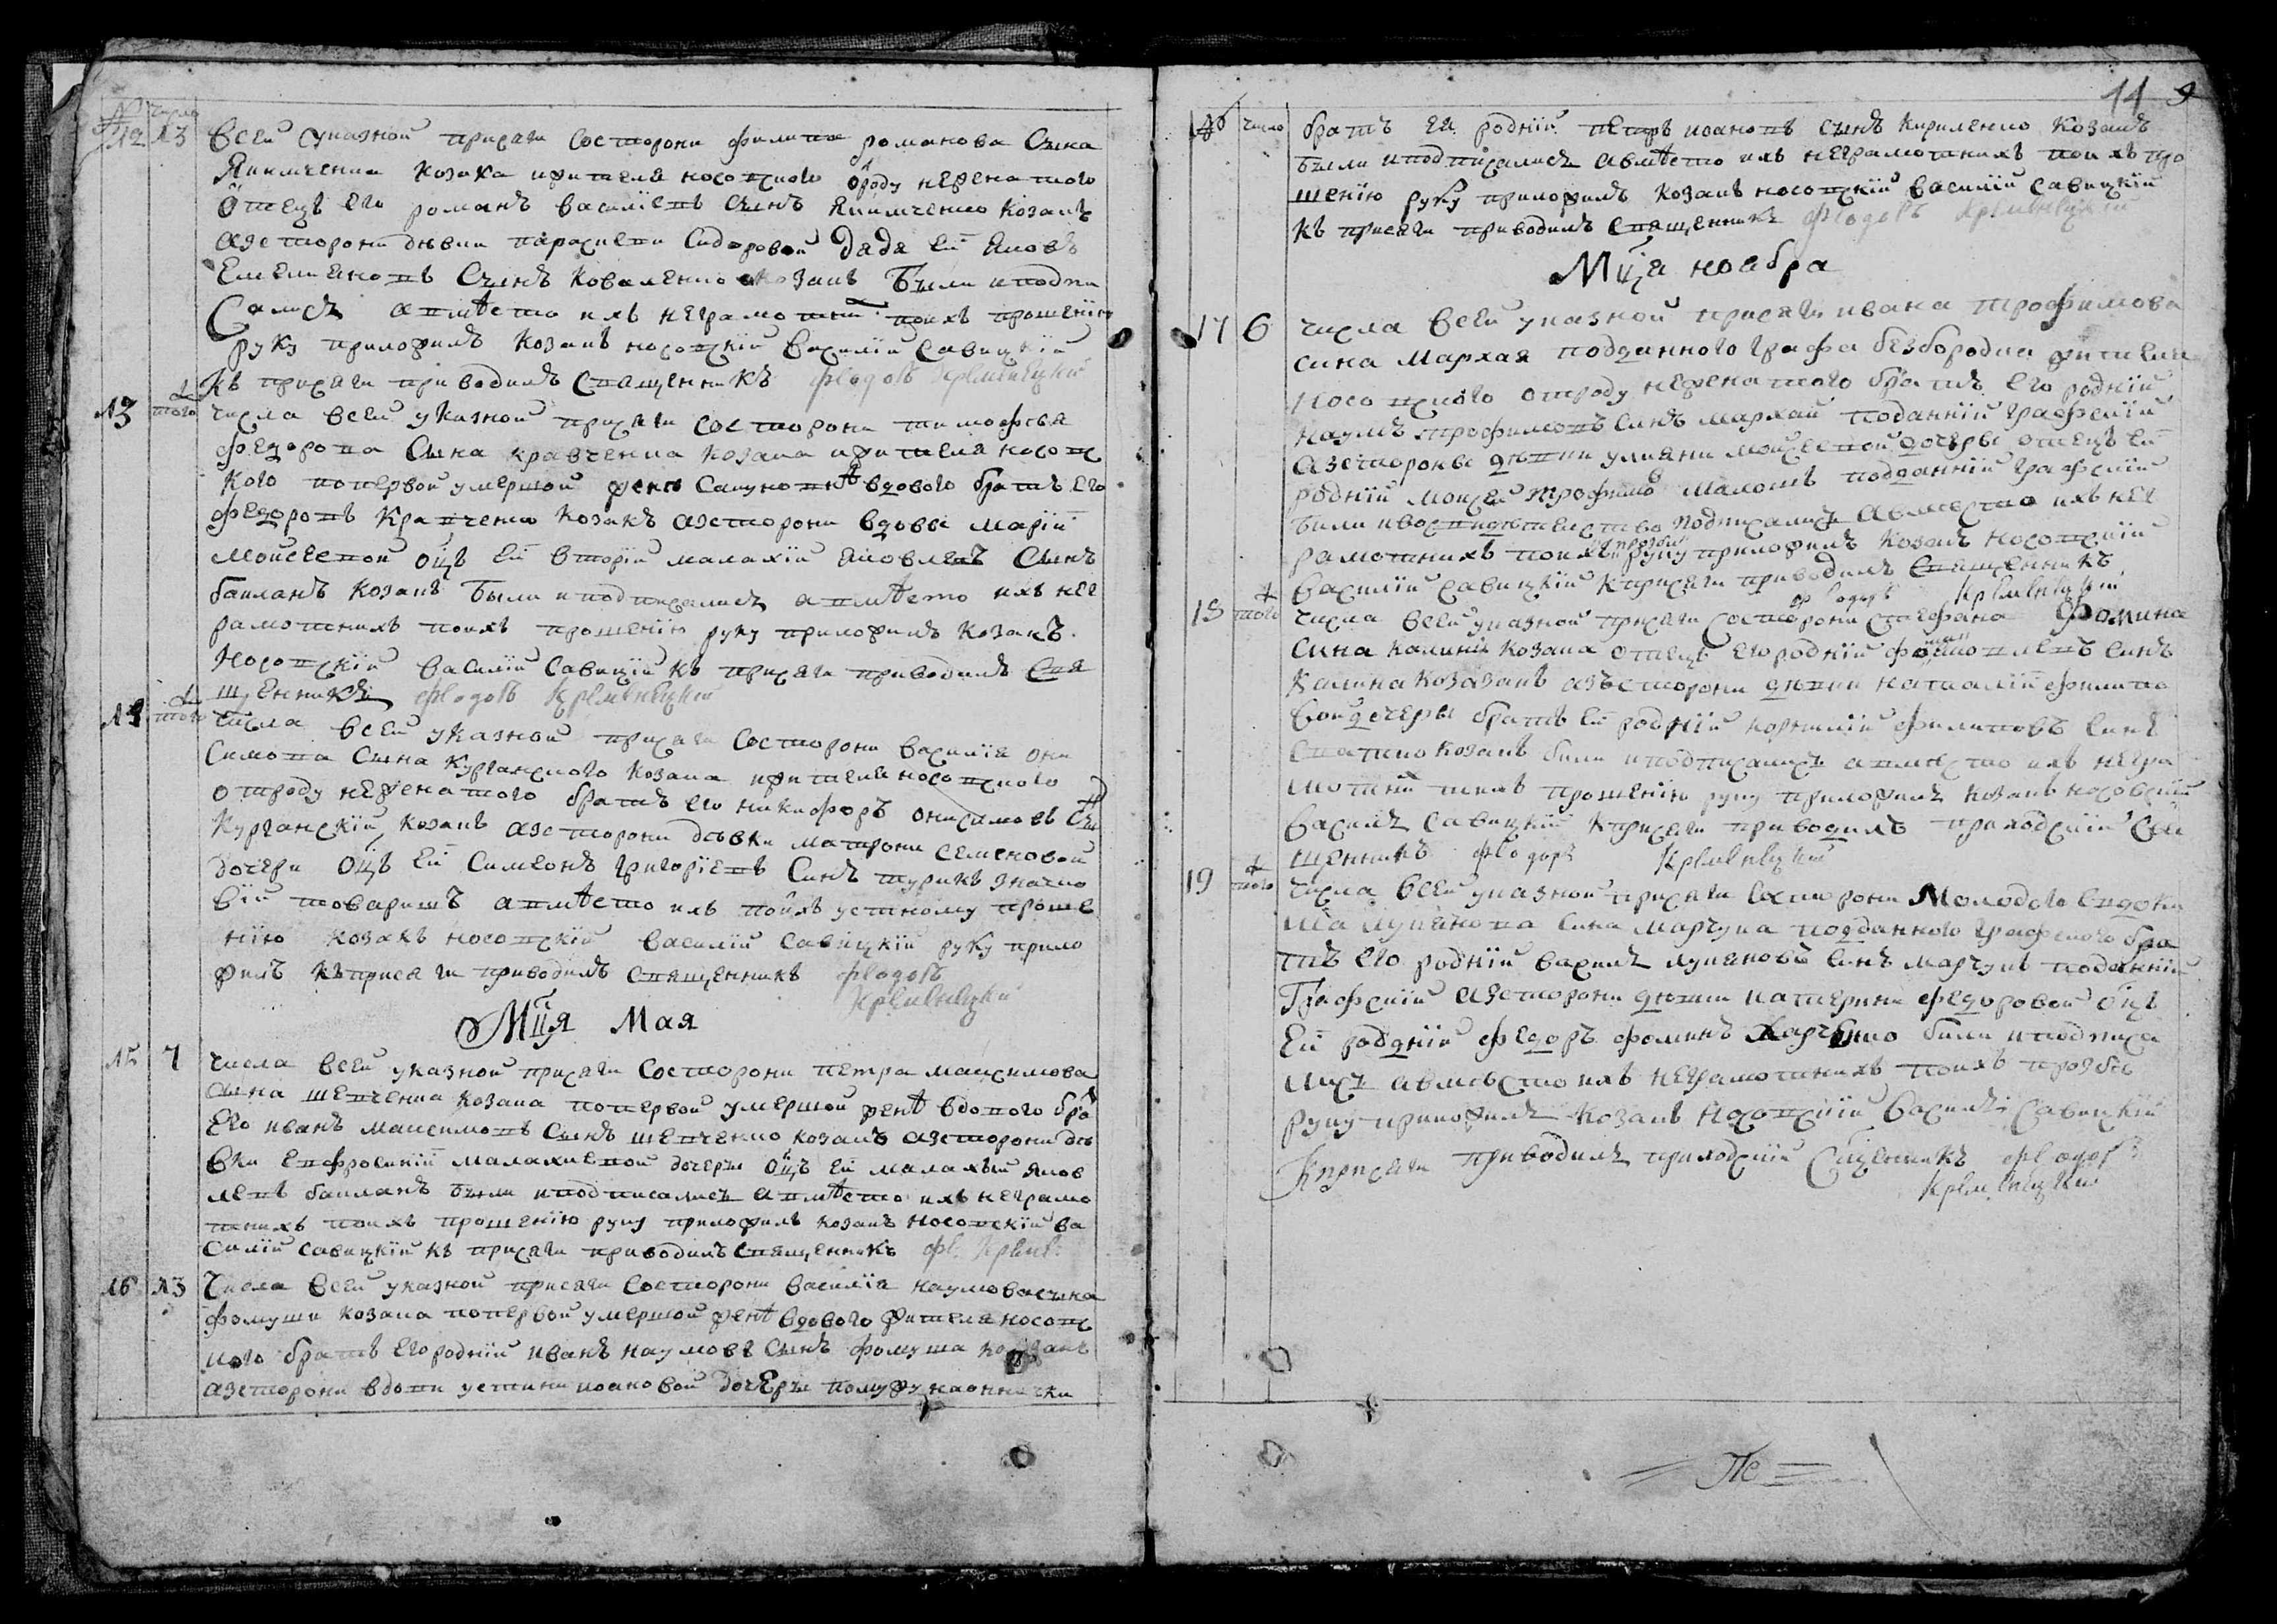 № число
12 13 всей указной присяги состорони филипа романова сына
Якимченка козака жителя носовского отроду неженатого
Отецъ его романъ василіевъ сынъ Якимченко козакъ
азсторони дѣвки параскеви Сидоровой дядя ей яковъ
Емелияновъ Сынъ коваленко козакъ Были и подпи
Салисъ авмѣсто ихъ неграмотній поихъ прошенію
руку приложилъ козакъ носовскій василій савицкій
къ присяги приводилъ священникъ феодоръ
13 того числа всей указной присяги состорони тимофѣя
федорова Сына кравченка козака жителя носовс
кого попервой умершой вдового братъ его
федоровъ кравченко козакъ азсторони вдовы маріи
моисеевой оцъ ей вторій малахій яковлевъ Сынъ
бакланъ козакъ Были и подписались авмѣсто ихъ нег
рамотнихъ поихъ прошенію руку приложилъ козакъ
носовскій василій савицкій къ присяги приводилъ свя
щенникъ феодоръ
14 того числа всей указной присяги состорони василія они
симова Сына курганского козака жителя носовского
отроду неженатого братъ его никифоръ онисимовъ Сы
курганскій козакъ азсторони дѣвки матрони семеновой
дочери оцъ ей Симеонъ григоріевъ Синъ турикъ значко
вій товаришъ авмѣсто ихъ поихъ устному проше
нію козакъ носовскій василій савицкій руку прило
жилъ къприсяги приводилъ священникъ феодоръ
Мця Мая
15 7 числа всей указной присяги состорони петра максимова
сына шевченка козака попервой умершой женѣ вдового бра
его иванъ максимовъ Сынъ шевченко козакъ азсторони дѣ
вки евфросиніи малахиевой дочери оцъ ей малахій яков
левъ бакланъ были и подписались авмѣсто ихъ неграмо
тнихъ поихъ прошенію руку приложилъ козакъ носовскій ва
силій савицкій къ присяги приводилъ священникъ
16 13 числа всей указной присяги состорони василія наумова сына
фомуши козака попервой умершой женѣ вдового жителя носовс
кого братъ его родній иванъ наумовъ Сынъ фомуша козакъ
азсторони вдови устини ивановой дочери
11
№ число братъ ей родній петръ ивановъ сынъ кириленко козакъ
были и подписались авмѣсто ихъ неграмотнихъ поихъ про
шенію руку приложилъ козакъ носовскій василій савицкій
къ присяги приводилъ священникъ феодоръ
Мця ноября
17 6 числа всей указной присяги ивана трофимова
сина мархая подданного графа безбородка жителя
носовского отроду неженатого братъ его родній
наумъ трофимовъ синъ мархай поданній графскій
азсторони дѣвки улияни моисеевой дочери отецъ ей
родній моисей трофимов подданній графскій
били и подписались авмѣсто ихъ нег
рамотнихъ поихъ прозби руку приложилъ козакъ носовскій
василій савицкій кприсяги приводилъ священникъ
феодоръ
18 того числа всей указной присяги состорони стефана фомина
сина калини козака отецъ его родній синъ
калина козакъ азъсторони дѣвки наталіи филипо
вой дочери братъ ей родній корнилій филиповъ синъ
козакъ били и подписались авмѣсто ихъ негра
мотній поихъ прошенію руку приложилъ козакъ носовскій
василъ савицкій кприсяги приводилъ приходскій свя
щенникъ феодоръ
19 того числа всей указной присяги состорони молодого евдоки
ма лукянова сина марчука подданного графского бра
тъ его родній василъ лукяновъ синъ марчукъ поданній
графскій азсторони дѣвки катерини федоровой оцъ
ей родній федоръ фоминъ харченко били и подписа
лись авмѣсто ихъ неграмотнихъ поихъ прозбѣ
руку приложилъ козакъ носовскій василъ савицкій
кприсяги приводилъ приходскій священникъ феодоръ